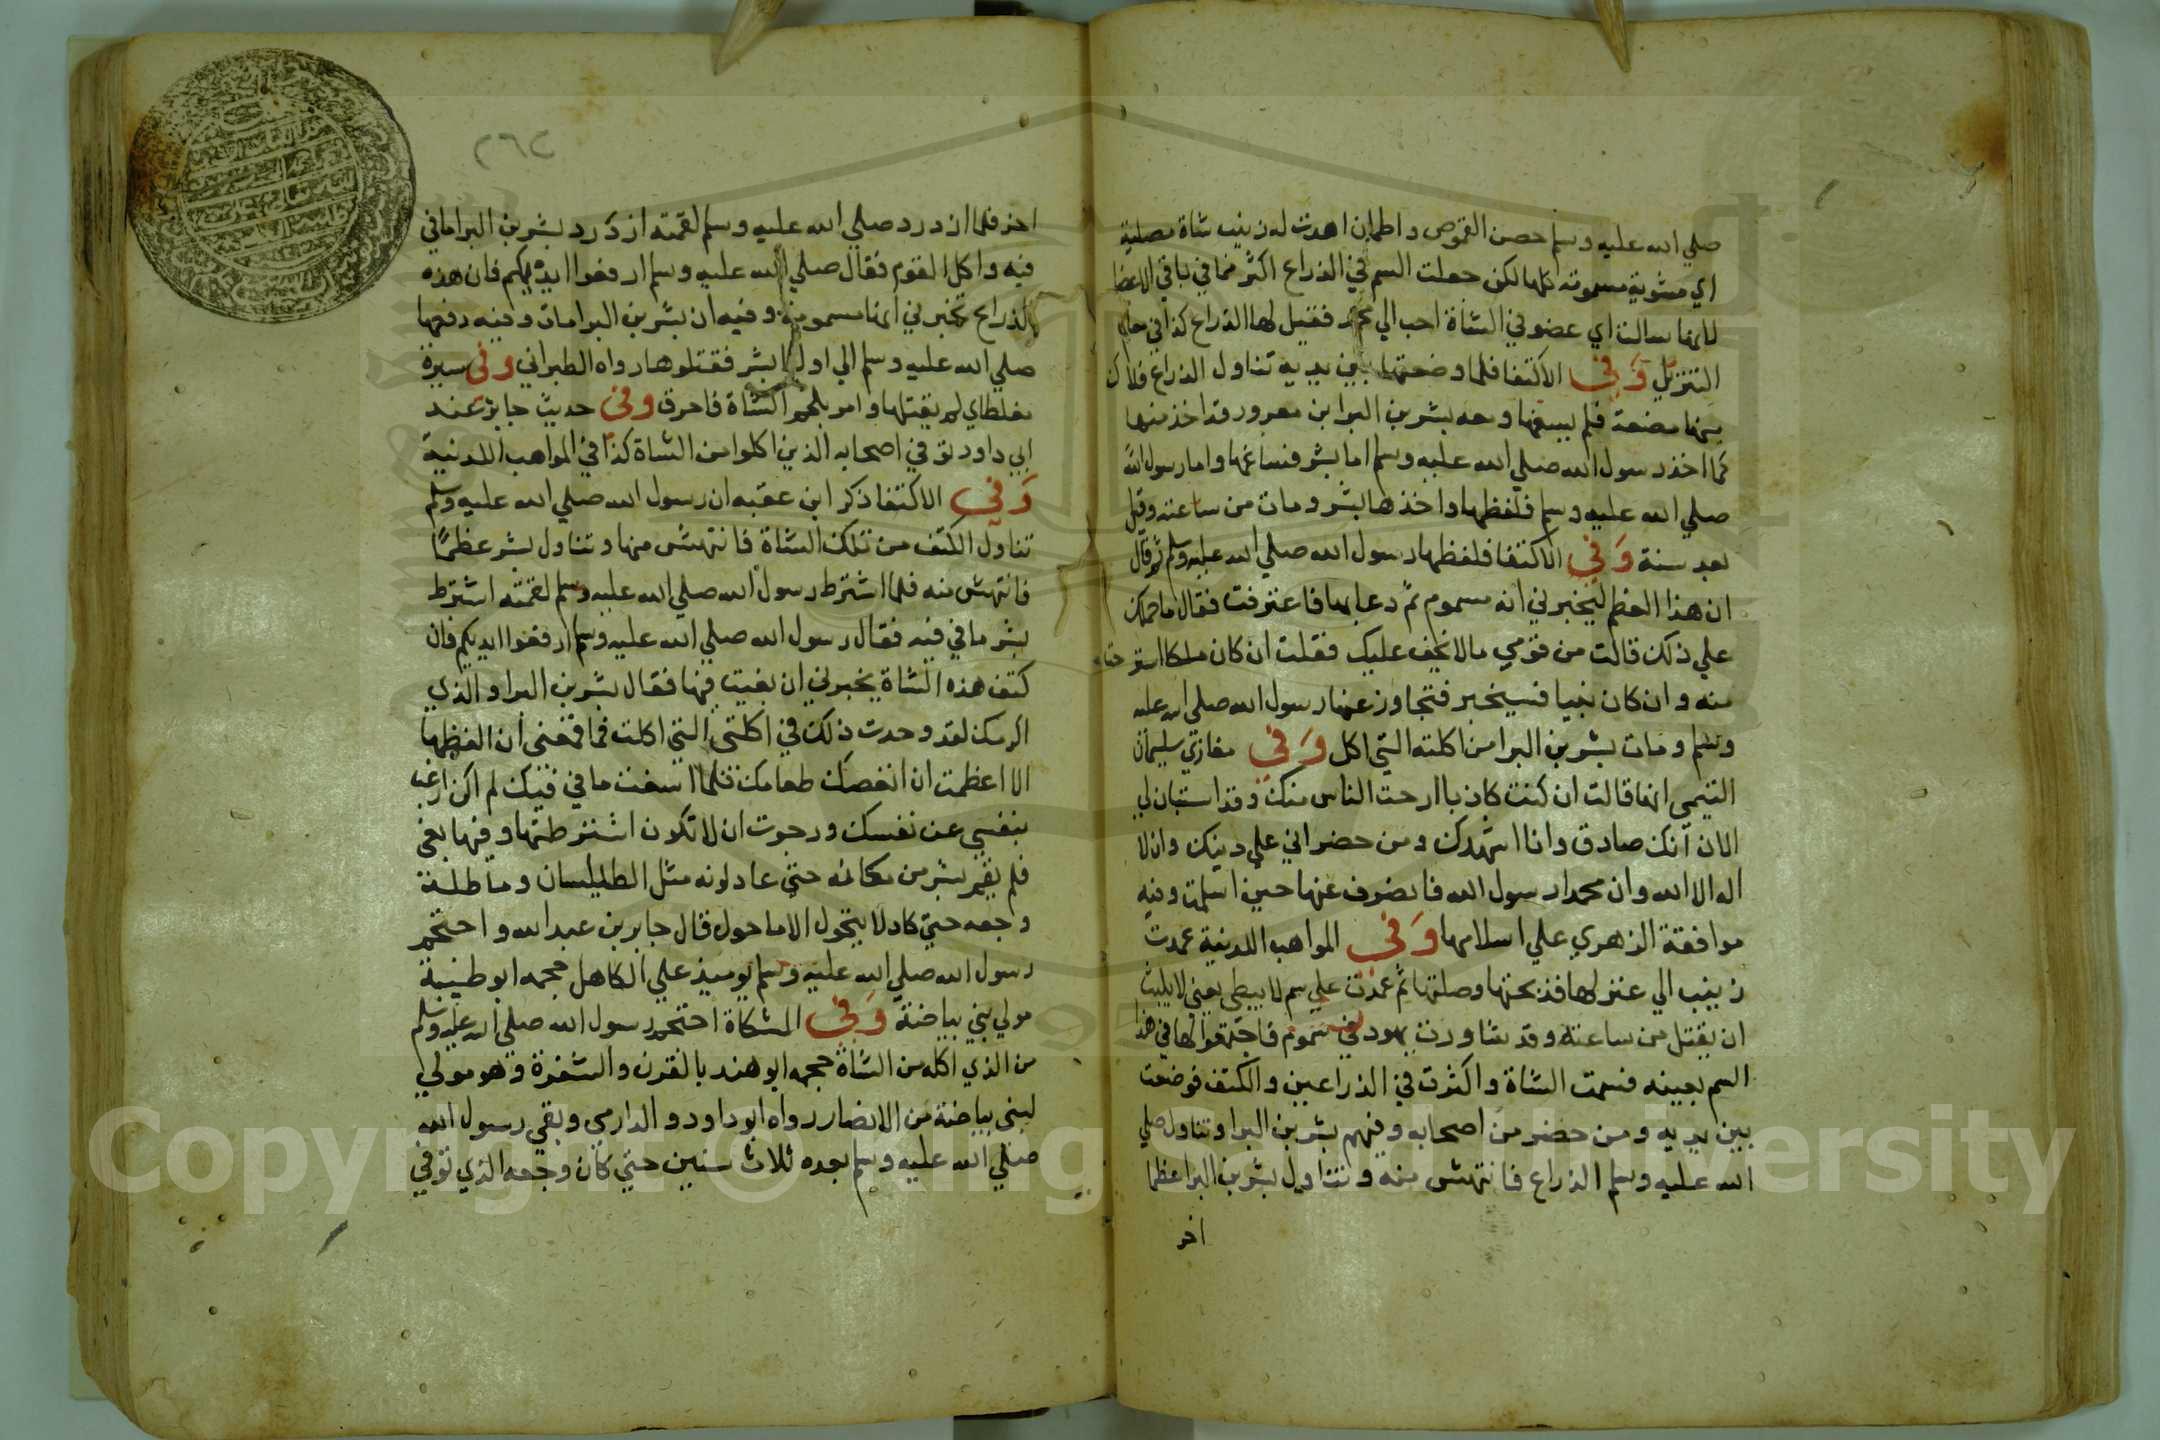 صلي الله عليه وسلم حصن القموص واطمان اهدت له زينب شاة مصلية
اي مشوية مسمومة كلها لكن جعلت السم في الذراع اكثر مما في باقي الاعضا
لانها سالت اي عضو في الشاة احب الي محمد فقيل لها الذراع كذا في معالم
التنزيل وَفي الاكتفا فلما وضعتها بين يديه تناول الذراع فلاك
منها مضغة فلم يسغها ومعه بشر بن البرا بن معرور قد اخذ منها
كما اخذ رسول الله صلي الله عليه وسلم اما بشر فنساغها واما رسول الله
صلي الله عليه وسلم فلفظها واخذها بشر ومات من ساعته وقيل
بعد سنة وَفي الاكتفا فلفظها رسول الله صلي الله عليه وسلم ثم قال
ان هذا العظم ليخبرني انه مسموم ثم دعا بها فاعترفت فقال ما حملك
علي ذلك قالت من قومي مالا يخف عليك فقلت ان كان ملكا استرحنا
منه وان كان نبيا فسيخبر فتجاوز عنها رسول الله صلي الله عليه
وسلم ومات بشر بن البرا من اكلته التي اكل وَفي مغازي سليمان
التيمي انها قالت ان كنت كاذبا ارحت الناس منك وقد استبان لي
الان انك صادق وانا اشهدك ومن حضر اني علي دينك وان لا
اله الا الله وان محمدا رسول الله فانصرف عنها حين اسلمت وفيه
موافقة الزهري علي اسلامها وَفي المواهب اللدنية عمدت
زينب الي عنز لها فذبحتها وصلتها ثم عمدت علي سم لا يبطي يعني لا يلبث
ان يقتل من ساعته وقد شاورت يهود في سموم فاجتمعوا لها في هذا
السم بعينه فسمت الشاة واكثرت في الذراعين والكتف فوضعت
بين يديه ومن حضر من اصحابه وفيهم بشر بن البرا وتناول صلي
الله عليه وسلم الذراع فانتهش منه وتناول بشر بن البرا عظما
اخر
٢٦٢
اخر فلما ازدرد صلي الله عليه وسلم لقمته ازدرد بشر بن البرا ما في
فيه واكل القوم فقال صلي الله عليه وسلم ارفعوا ايديكم فان هذه
الذراع تخبرني انها مسمومة وفيه ان بشر بن البرا مات وفيه دفعها
صلي الله عليه وسلم الي اوليا بشر فقتلوها رواه الطبراني وَفي سيرة
مغلطاي لم يقتلها وامر بلحم الشاة فاحرق وفي حديث جابر عند
ابي داود توفي اصحابه الذين اكلوا من الشاة كذا في المواهب اللدنية
وَفي الاكتفا ذكر ابن عقبه ان رسول الله صلي الله عليه وسلم
تناول الكتف من تلك الشاة فانتهش منها وتناول بشر عظما
فانتهش منه فلما اشترط رسول الله صلي الله عليه وسلم لقمته اشترط
بشر ما في فيه فقال رسول الله صلي الله عليه وسلم ارفعوا ايديكم فان
كتف هذه الشاة يخبرني ان بغيت فيها فقال بشر بن البرا والذي
اكرمك لقد وجدت ذلك في اكلتي التي اكلت فما منعني ان الفظها
الا اعظمت ان انغصك طعامك فلما اسغت ما في فيك لم اكن ارغب
بنفسي عن نفسك ورجوت ان لا تكون اشترطتها وفيها بغي
فلم يقم بشر من مكانه حتي عاد لونه مثل الطيلسان وماطله
وجعه حتي كاد لا يتحول الا ما حول قال جابر بن عبد الله واحتجم
رسول الله صلي الله عليه وسلم يوميذ علي الكاهل حجمه ابو طيبة
مولي بني بياضة وَفي المشكاة احتجم رسول الله صلي الله عليه وسلم
من الذي اكله من الشاة حجمه ابو هند بالقرن والشفرة وهو مولي
لبني بياضة من الانصار رواه ابو داود والدارمي وبقي رسول الله
صلي الله عليه وسلم بعده ثلاث سنين حتي كان وجعه الذي توفي
Copyright © King Saud University